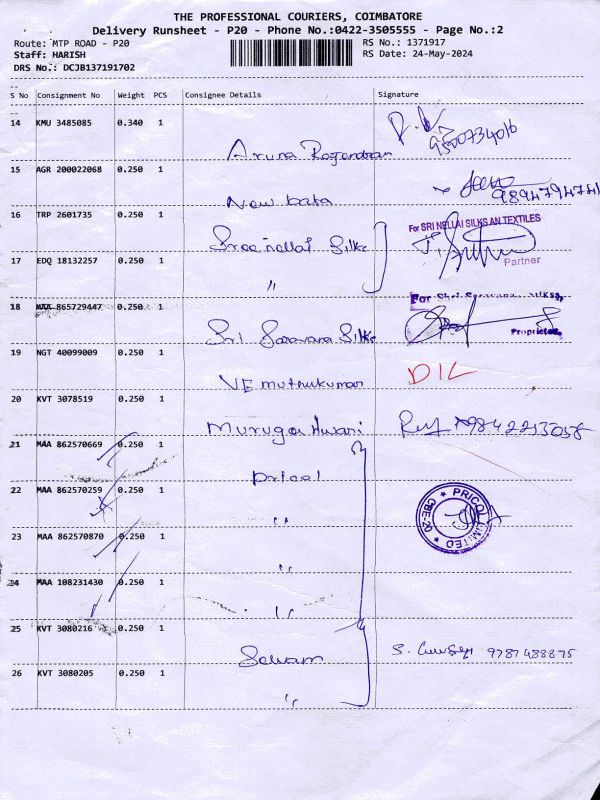 THE PROFESSIONAL COURIERS, COIMBATORE
Delivery Runsheet - P20 - Phone No.:0422-3505555 - Page No.:2
Route: MTP ROAD - P20 RS No.: 1371917
Staff: HARISH RS Date: 24-May-2024
DRS No.: DCJB137191702
S No Consignment No Weight PCS Consignee Details Signature
14 KMU 3485085 0.340 1 Aruna Rajendran 9500734016
15 AGR 200022068 0.250 1 New bata
16 TRP 2601735 0.250 1 Sree nellai Silks For SRI NELLAI SILKS AN TEXTILES
Partner
17 EDQ 18132257 0.250 1 "
18 MAA 865729447 0.250 1 Sri Saravana Silks For Shri Saravana Silkss,
Proprietor
19 NGT 40099009 0.250 1 VE muthukumar DIL
20 KVT 3078519 0.250 1 9842213058
21 MAA 862570669 0.250 1 Pricol
22 MAA 862570259 0.250 1 " PRICOL LIMITED CBE-20
23 MAA 862570870 0.250 1 "
24 MAA 108231430 0.250 1 "
25 KVT 3080216 0.250 1 Selvam 9787488875
26 KVT 3080205 0.250 1 "